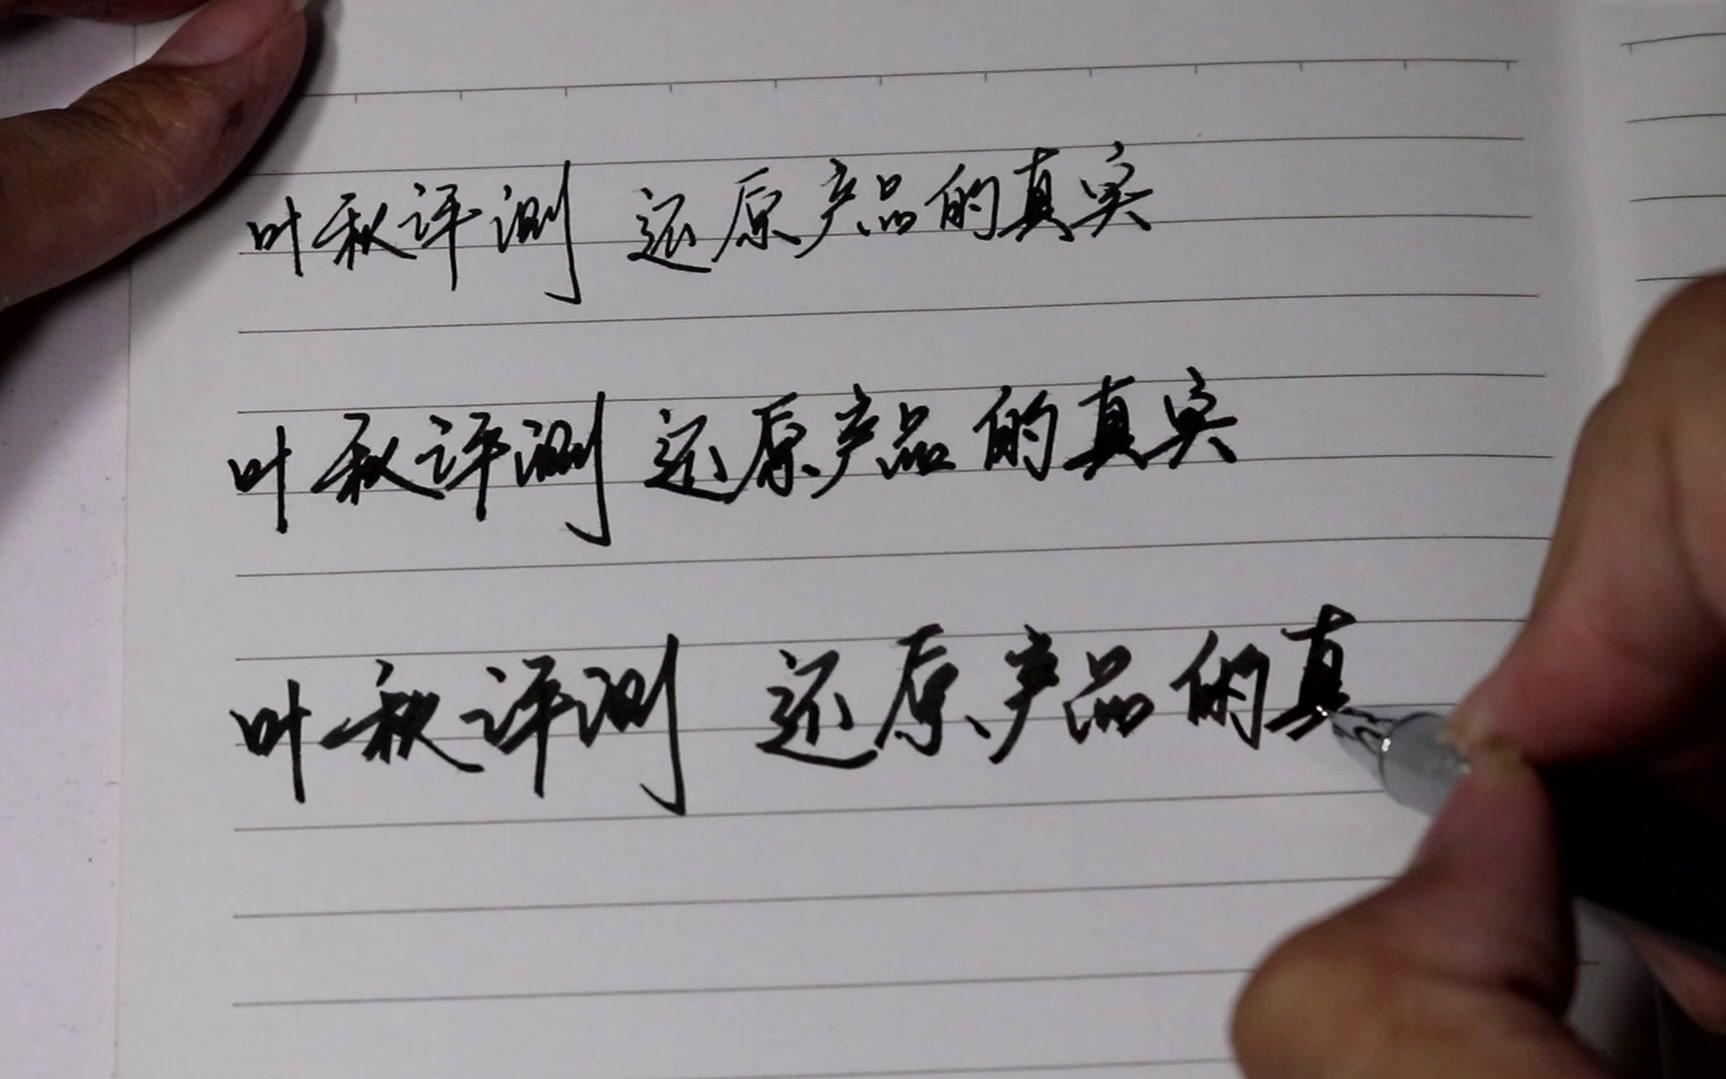 叶秋评测 还原产品的真实
叶秋评测 还原产品的真实
叶秋评测 还原产品的真